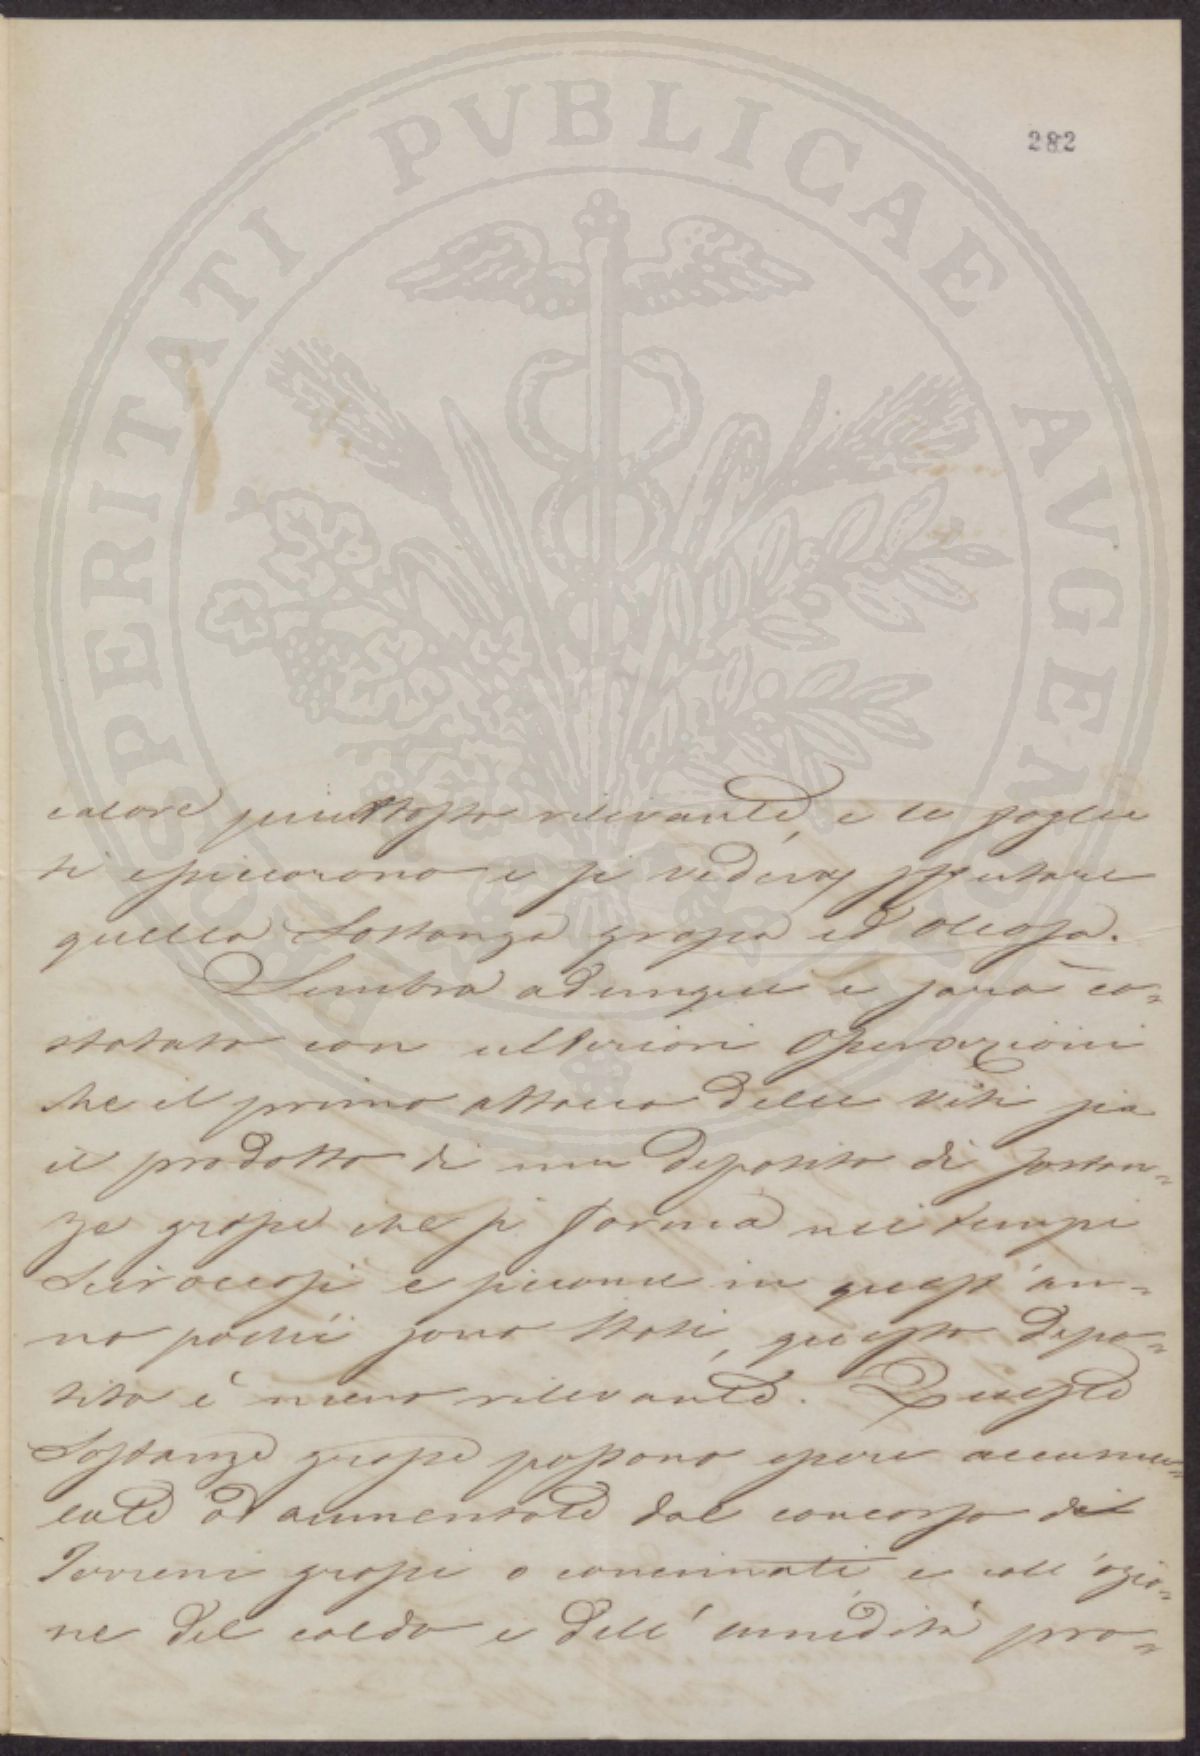 282
PROSPERITATI PVBLICAE AVGENDAE
calore piuttosto rilevante, e le foglie
si essiccorono e si vedeva spuntare
quella Sostanza grassa ed oleosa.
Sembra adunque e sarà co=
statato con ulteriori Operazioni
che il primo attacco delle Viti sia
il prodotto di un deposito di sostan=
ze grasse che si forma nei tempi
Sciroccosi e siccome in quest'an=
no pochi sono stati, questo depo=
sito è meno rilevante. Queste
Sostanze grasse possono essere accumu=
late od aumentate dal concorso di
Terreni grassi o concimati e coll'azio=
ne del caldo e dell'umidità pro=